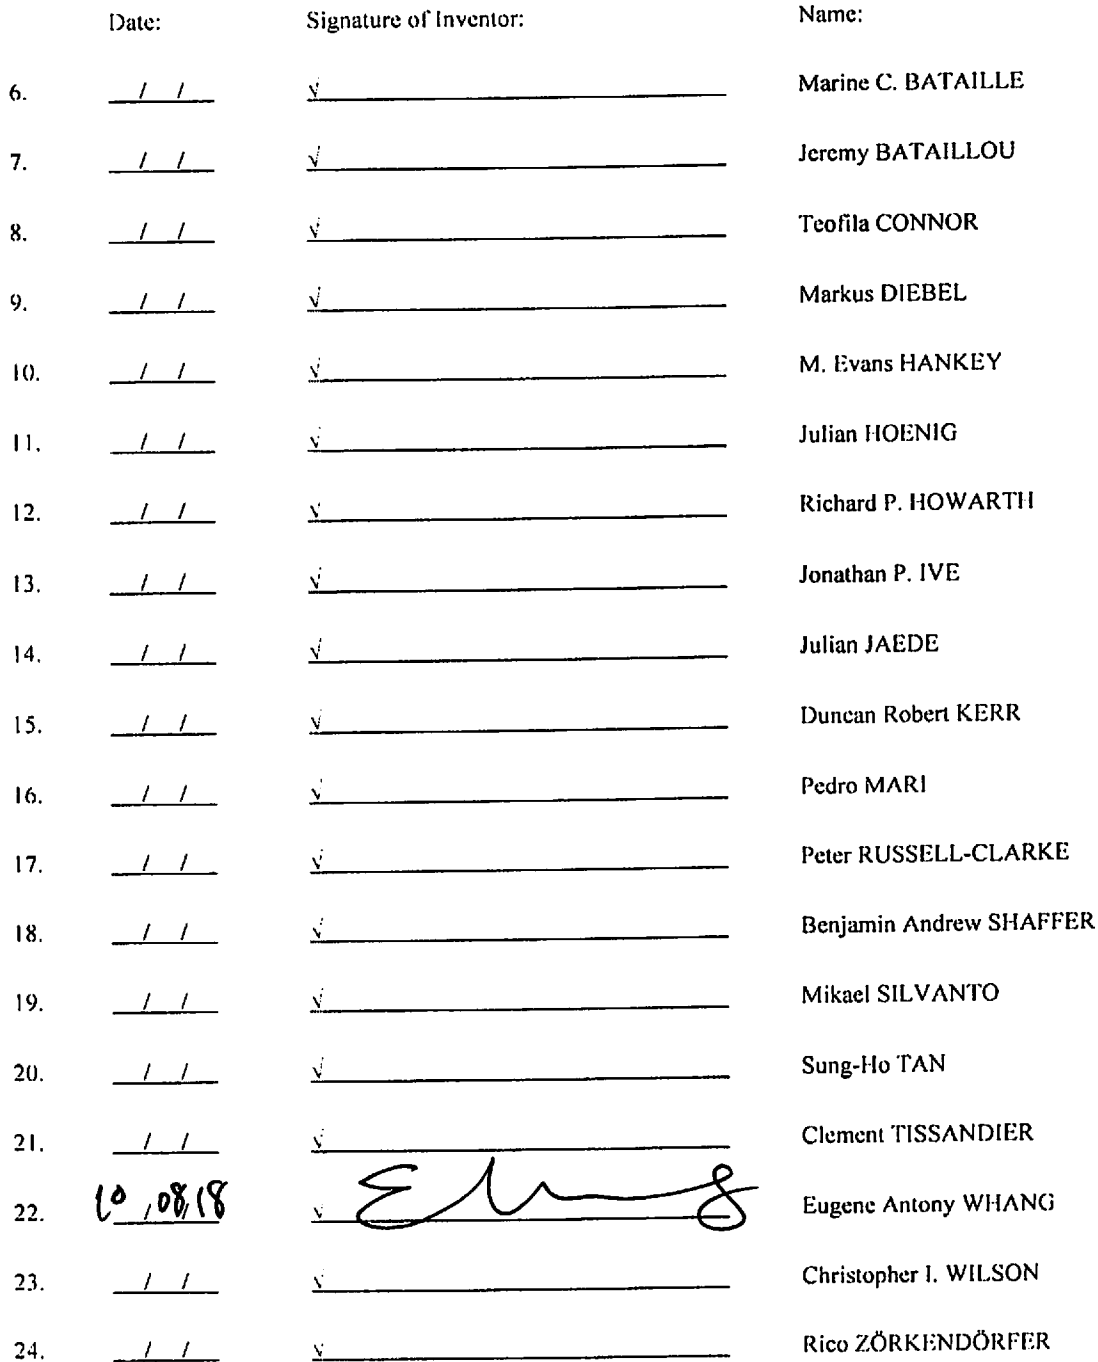 Date: Signature of Inventor: Name:
6. / / √ Marine C. BATAILLE
7. / / √ Jeremy BATAILLOU
8. / / √ Teofila CONNOR
9. / / √ Markus DIEBEL
10. / / √ M. Evans HANKEY
11. / / √ Julian HOENIG
12. / / √ Richard P. HOWARTH
13. / / √ Jonathan P. IVE
14. / / √ Julian JAEDE
15. / / √ Duncan Robert KERR
16. / / √ Pedro MARI
17. / / √ Peter RUSSELL-CLARKE
18. / / √ Benjamin Andrew SHAFFER
19. / / √ Mikael SILVANTO
20. / / √ Sung-Ho TAN
21. / / √ Clement TISSANDIER
22. 10/08/18 √ Eugene Antony WHANG
23. / / √ Christopher I. WILSON
24. / / √ Rico ZÖRKENDÖRFER